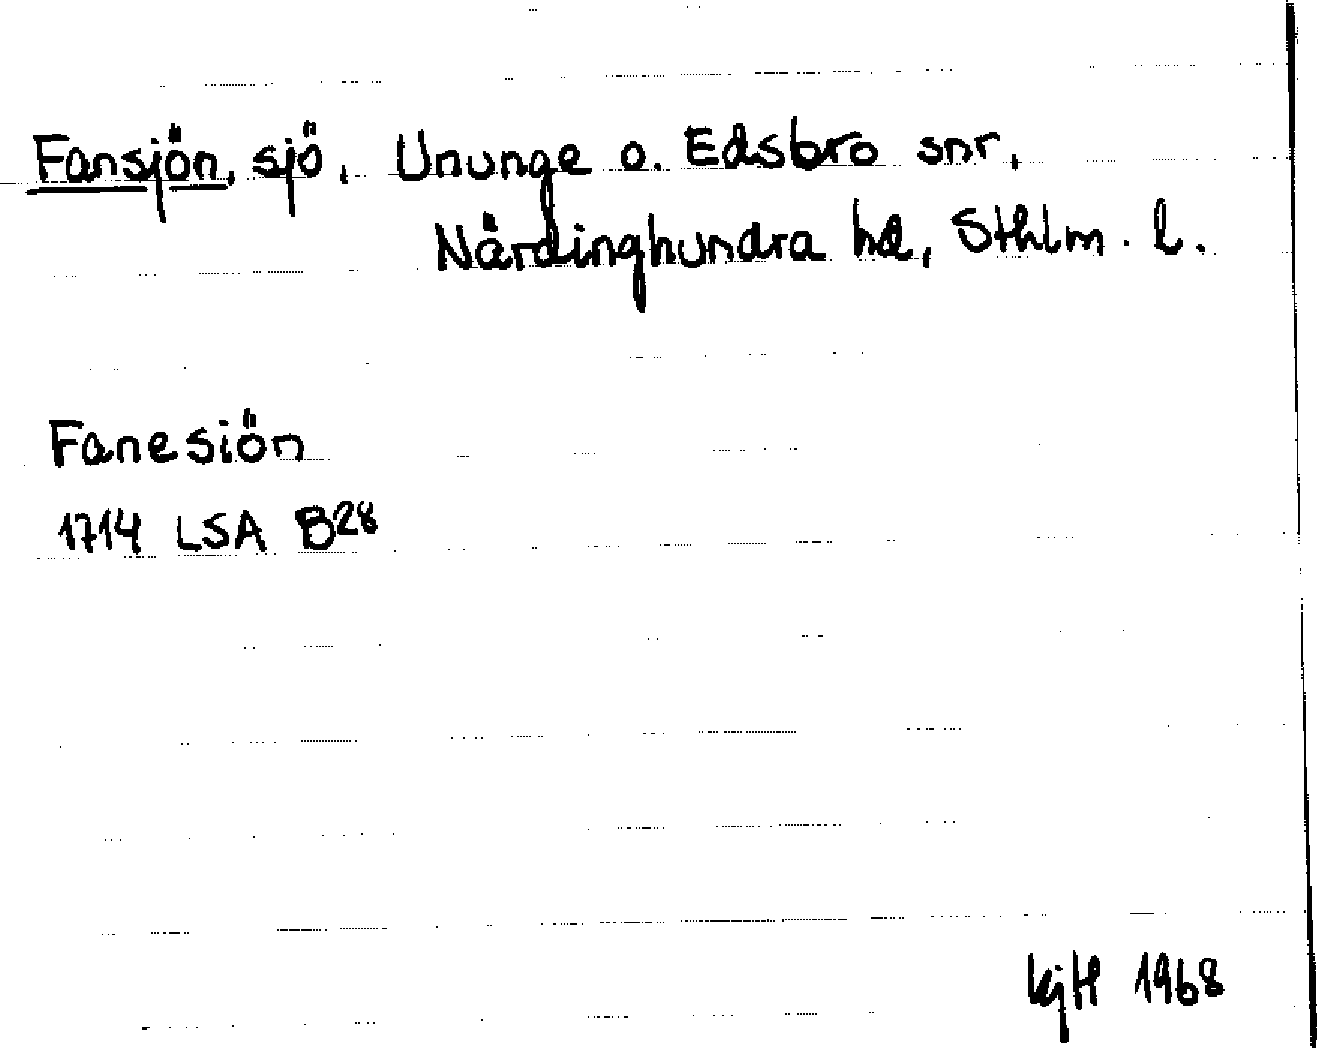 Fansjön, sjö, Ununge o. Edsbro snr,
Närdinghundra hd, Sthlm. l.
Fanesiön
1714 LSA B28
KjH 1968